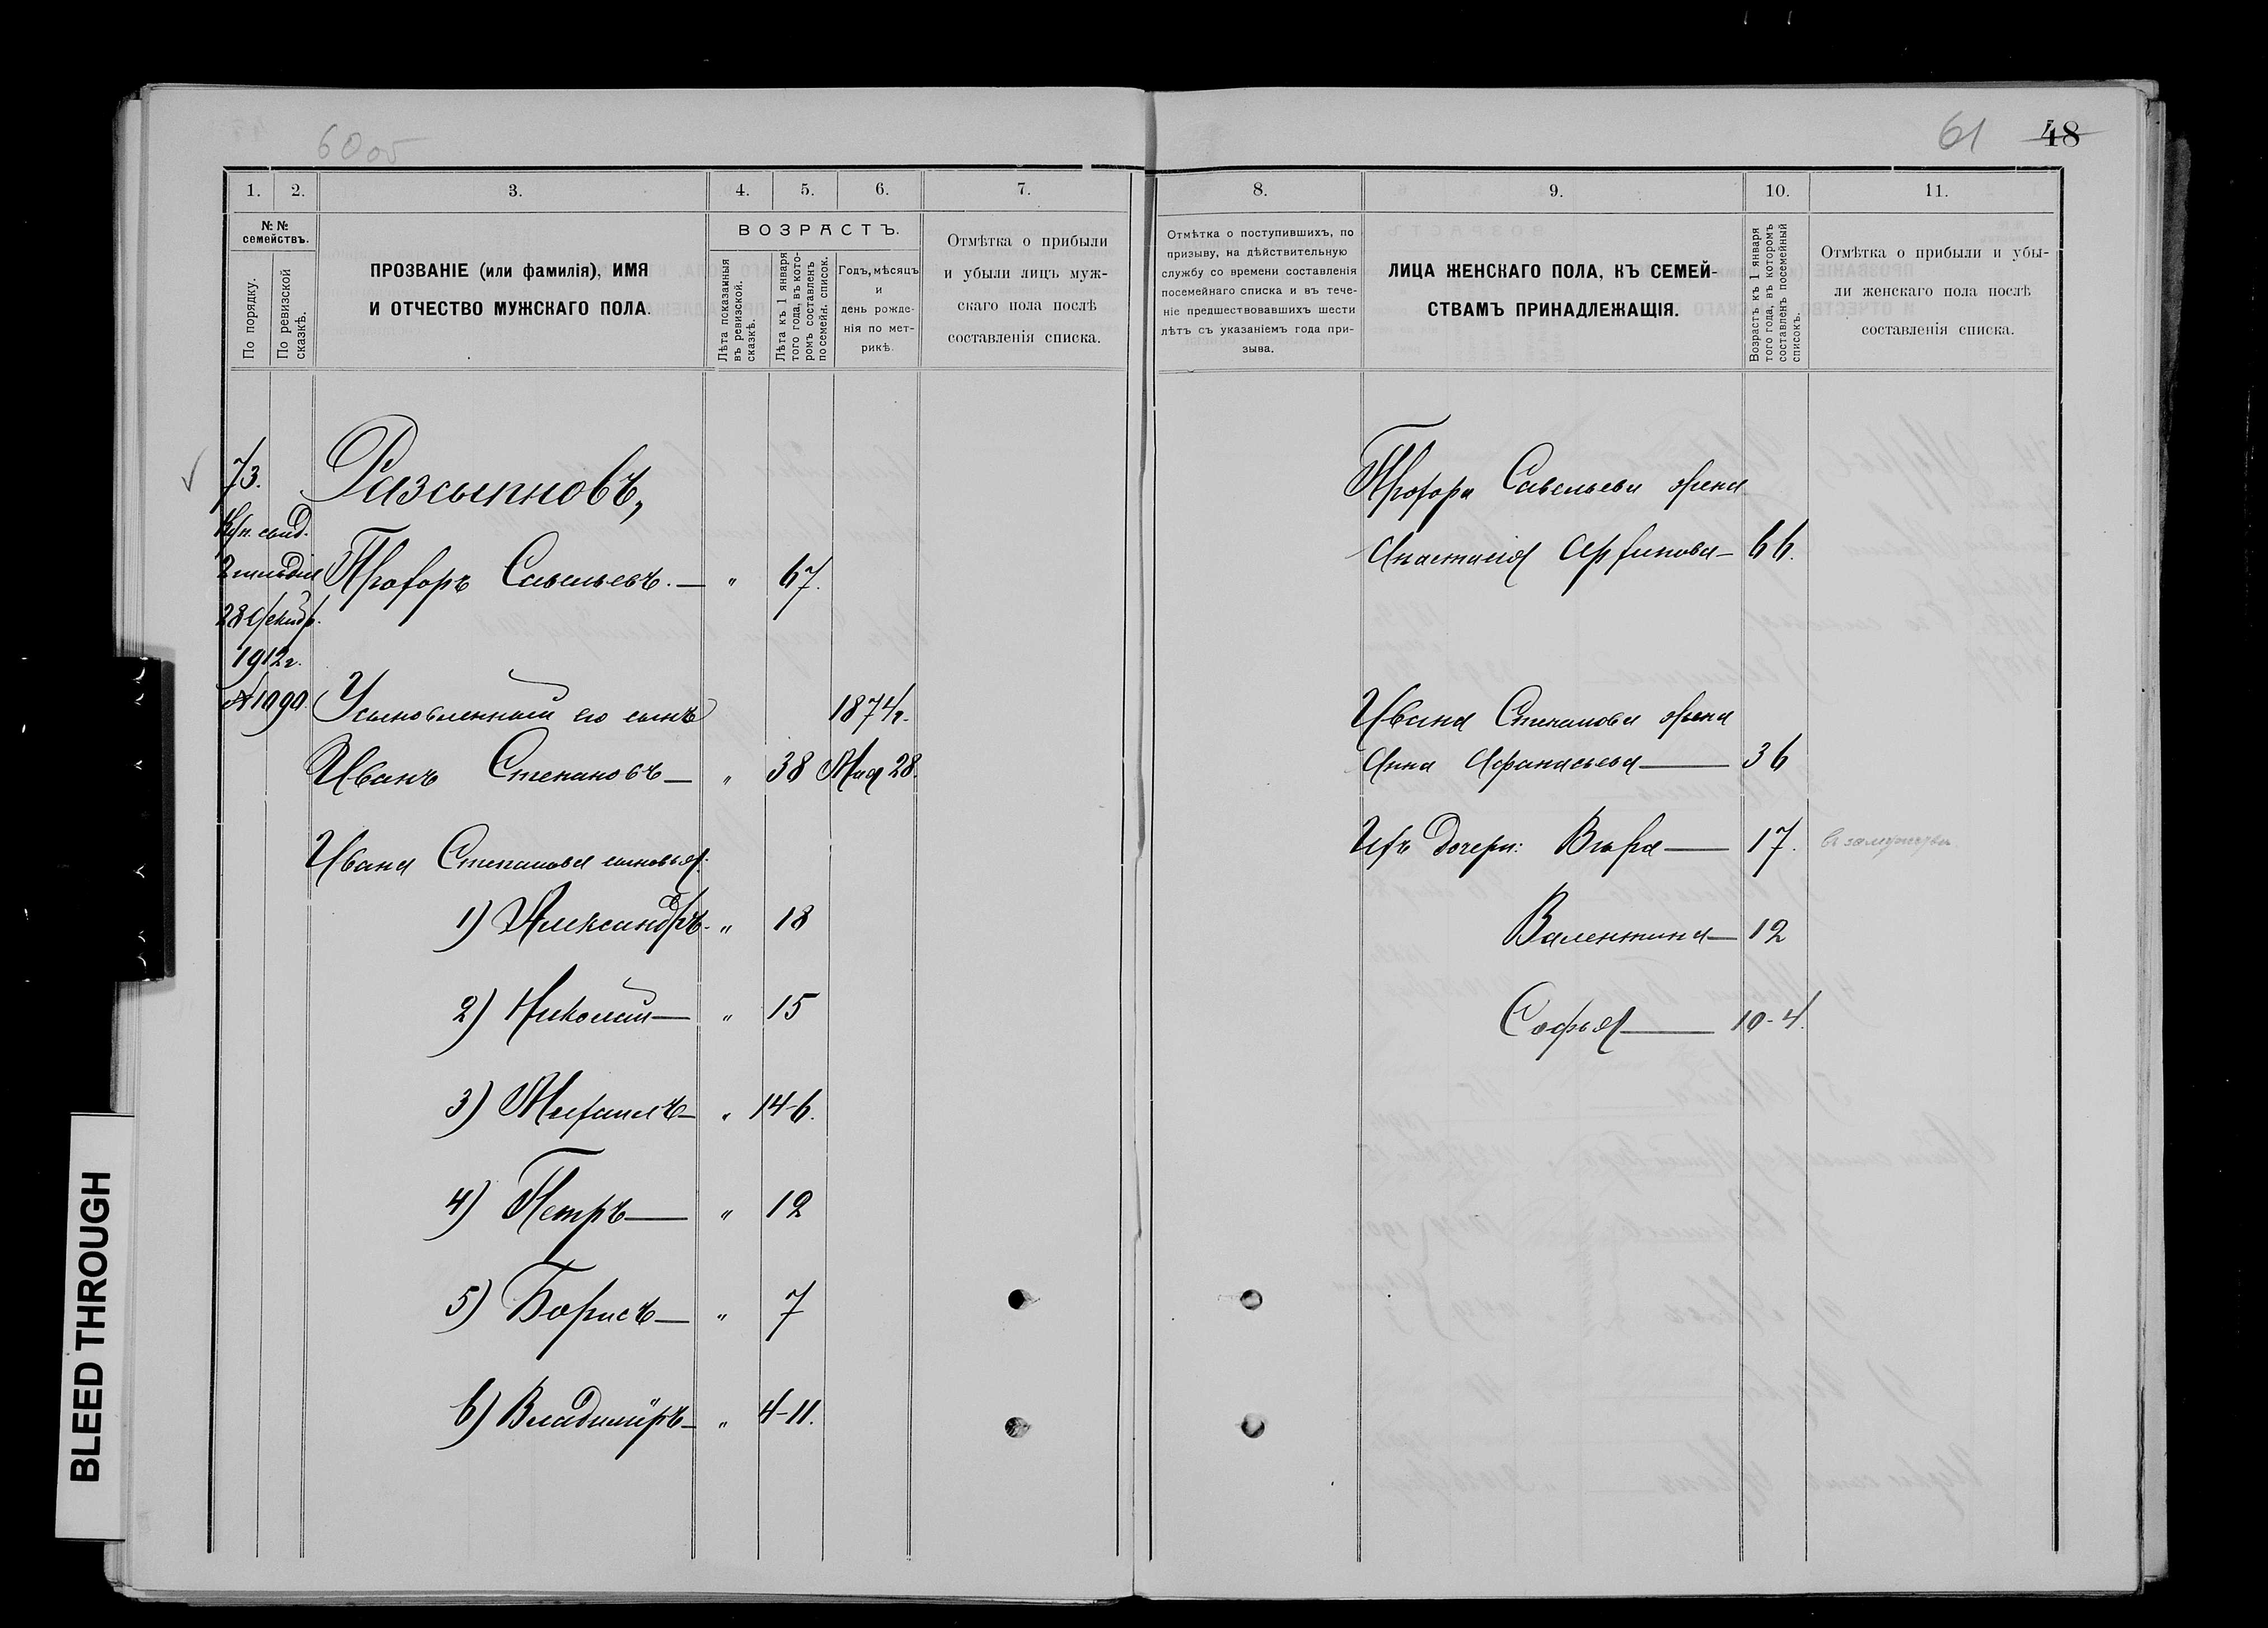 60 об
61 48
1. 2. 3. 4. 5. 6. 7.
№ №
семействъ.
По порядку.
По ревизской
сказкѣ.
ПРОЗВАНІЕ (или фамилія), ИМЯ
И ОТЧЕСТВО МУЖСКАГО ПОЛА.
ВОЗРАСТЪ.
Лѣта показанныя
въ ревизской.
сказкѣ.
Лѣта къ 1 января
того года, въ кото-
ромъ составленъ
посемейн. список.
Годъ, мѣсяцъ
и
день рожде-
нія по мет-
рикѣ.
Отмѣтка о прибыли
и убыли лицъ муж-
скаго пола послѣ
составленія списка.
73.
Куп. свид.
2 гильдіи
28 Декабр.
1912 г.
№ 1090.
Разсыпновъ,
Прохоръ Савельевъ. — " 67.
Усыновленный его сынъ 1874 г.
Иванъ Степановъ — " 38 Мая 28.
Ивана Степанова сыновья:
1) Александръ. " 18
2) Николай — " 15
3) Михаилъ — " 14-6.
4) Петръ — " 12
5) Борисъ — " 7
6) Владиміръ — " 4-11.
8. 9. 10. 11.
Отмѣтка о поступившихъ, по
призыву, на дѣйствительную
службу со времени составленія
посемейнаго списка и въ тече-
ніе предшествовавшихъ шести
лѣтъ съ указаніемъ года при-
зыва.
ЛИЦА ЖЕНСКАГО ПОЛА, КЪ СЕМЕЙ-
СТВАМЪ ПРИНАДЛЕЖАЩІЯ.
Возрастъ къ 1 января
того года, въ которомъ
составленъ посемейный
списокъ.
Отмѣтка о прибыли и убы-
ли женскаго пола послѣ
составленія списка.
Прохора Савельева жена
Анастасія — 66.
Ивана Степанова жена
Анна Афанасьева — 36
Ихъ дочери: Вѣра — 17. въ замужествѣ
Валентина — 12
Софья — 10-4.
BLEED THROUGH